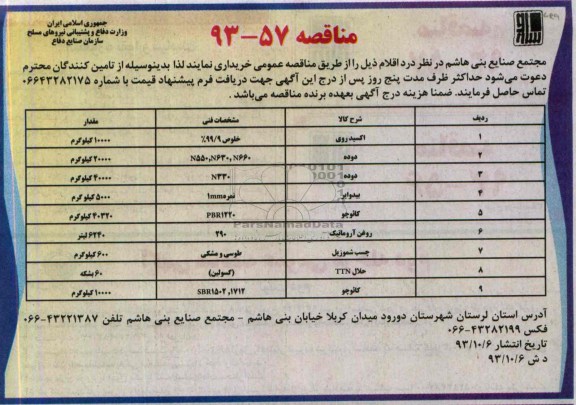 جمهوری اسلامی ایران
وزارت دفاع و پشتیبانی نیروهای مسلح
سازمان صنایع دفاع
مناقصه ۵۷-۹۳
مجتمع صنایع بنی هاشم در نظر درد اقلام ذیل را از طریق مناقصه عمومی خریداری نمایند لذا بدینوسیله از تامین کنندگان محترم
دعوت می‌شود حداکثر ظرف مدت پنج روز پس از درج این آگهی جهت دریافت فرم پیشنهاد قیمت با شماره ۰۶۶۴۳۲۸۲۱۷۵
تماس حاصل فرمایند. ضمنا هزینه درج آگهی بعهده برنده مناقصه می‌باشد.
ردیف شرح کالا مشخصات فنی مقدار
۱ اکسید روی خلوص ۹۹/۹٪ ۱۰۰۰۰ کیلوگرم
۲ دوده N550,N630,N660 ۲۰۰۰۰ کیلوگرم
۳ دوده N330 ۴۰۰۰۰ کیلوگرم
۴ بیدوایر نمره 1mm ۵۰۰۰ کیلوگرم
۵ کائوچو PBR1220 ۴۰۳۲۰ کیلوگرم
۶ روغن آروماتیک ۲۹۰ ۶۲۴۰ لیتر
۷ چسب شموزیل طوسی و مشکی ۶۰۰ کیلوگرم
۸ حلال TTN (کسولین) ۶۰ بشکه
۹ کائوچو SBR1502, 1712 ۱۰۰۰۰ کیلوگرم
ParsNamadData
آدرس استان لرستان شهرستان دورود میدان کربلا خیابان بنی هاشم - مجتمع صنایع بنی هاشم تلفن ۴۳۲۲۱۳۸۷-۰۶۶
فکس ۴۳۲۸۲۱۹۹-۰۶۶
تاریخ انتشار ۹۳/۱۰/۶
د ش ۹۳/۱۰/۶